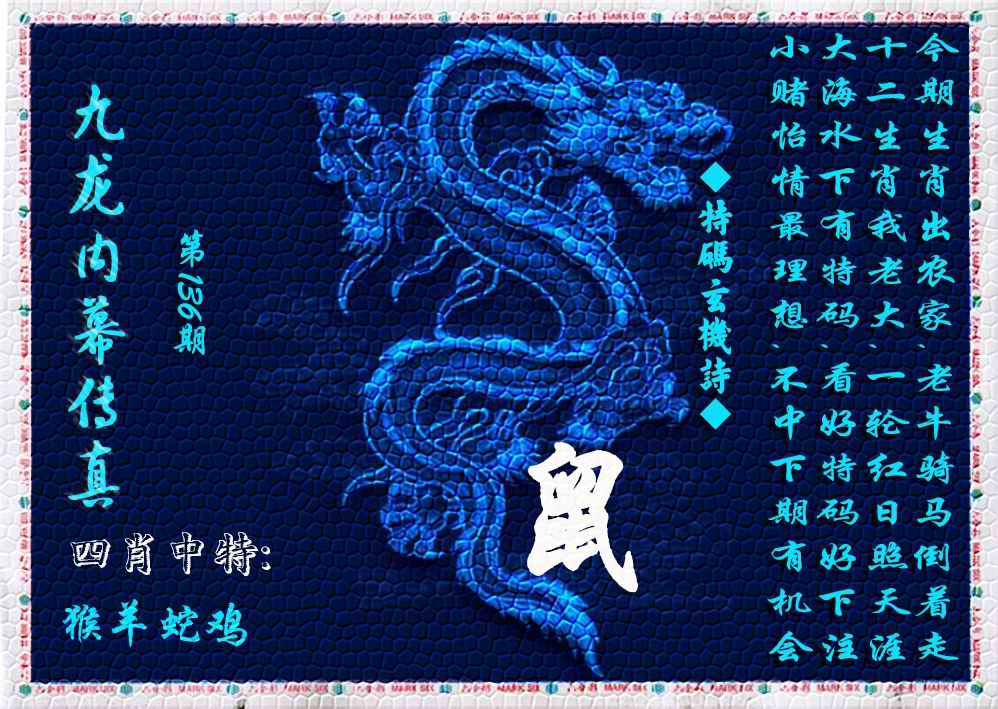 今期生肖出农家、老牛骑马倒着走
十二生肖我老大、一轮红日照天涯
大海水下有特码、看好特码好下注
小赌怡情最理想、不中下期有机会
◆特碼玄機詩◆
鼠
第136期
九龙内幕传真
四肖中特:
猴羊蛇鸡